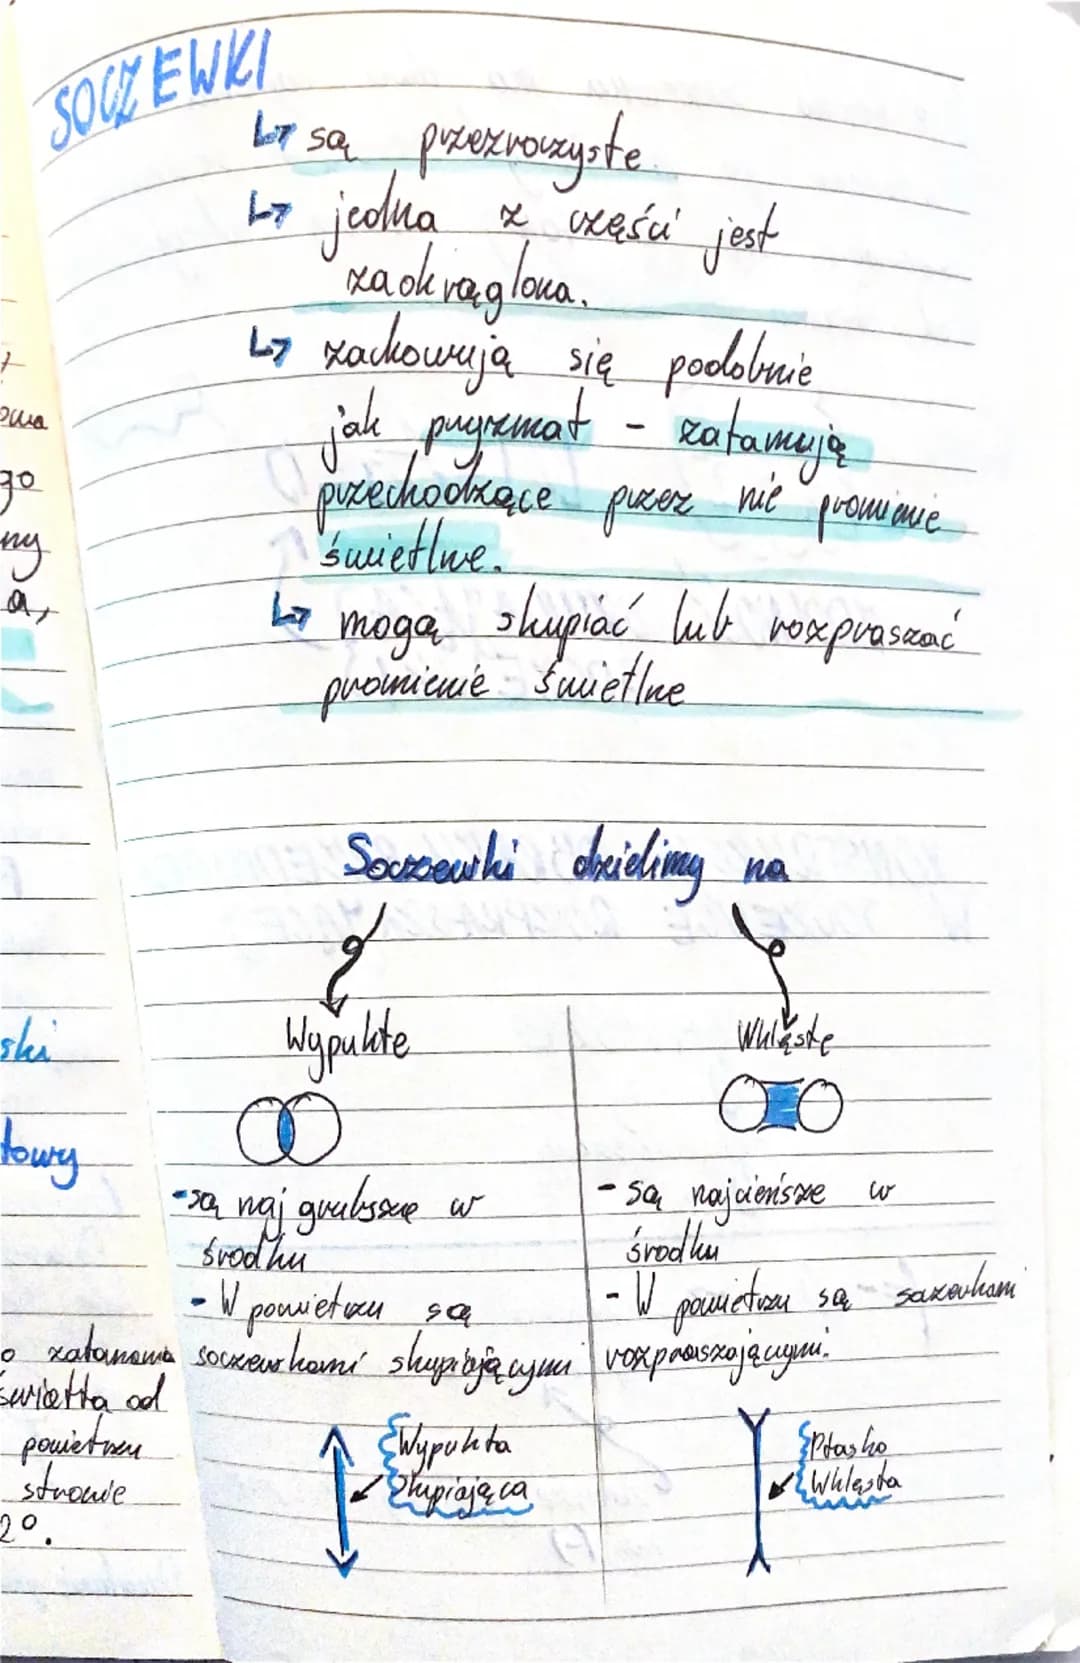 SOCZEWKI
↳ są przezroczyste.
↳ jedna z części jest
zaokrąglona.
↳ zachowują się podobnie
jak pryzmat - załamują
przechodzące przez nie promienie
świetlne.
↳ mogą skupiać lub rozpraszać
promienie świetlne
Soczewki dzielimy na
Wypukłe
Wklęsłę
- są naj grubsze w
środku
- W powietrzu są
soczewkami skupiającymi
- są najcieńsze w
środku
- W powietrzu są
rozpraszającymi.
Wypukła
Skupiająca
Płasko
Wklęsła
go
ny
a,
ski
towy
o załamania
światła od
powietrzu
stronie
2°.